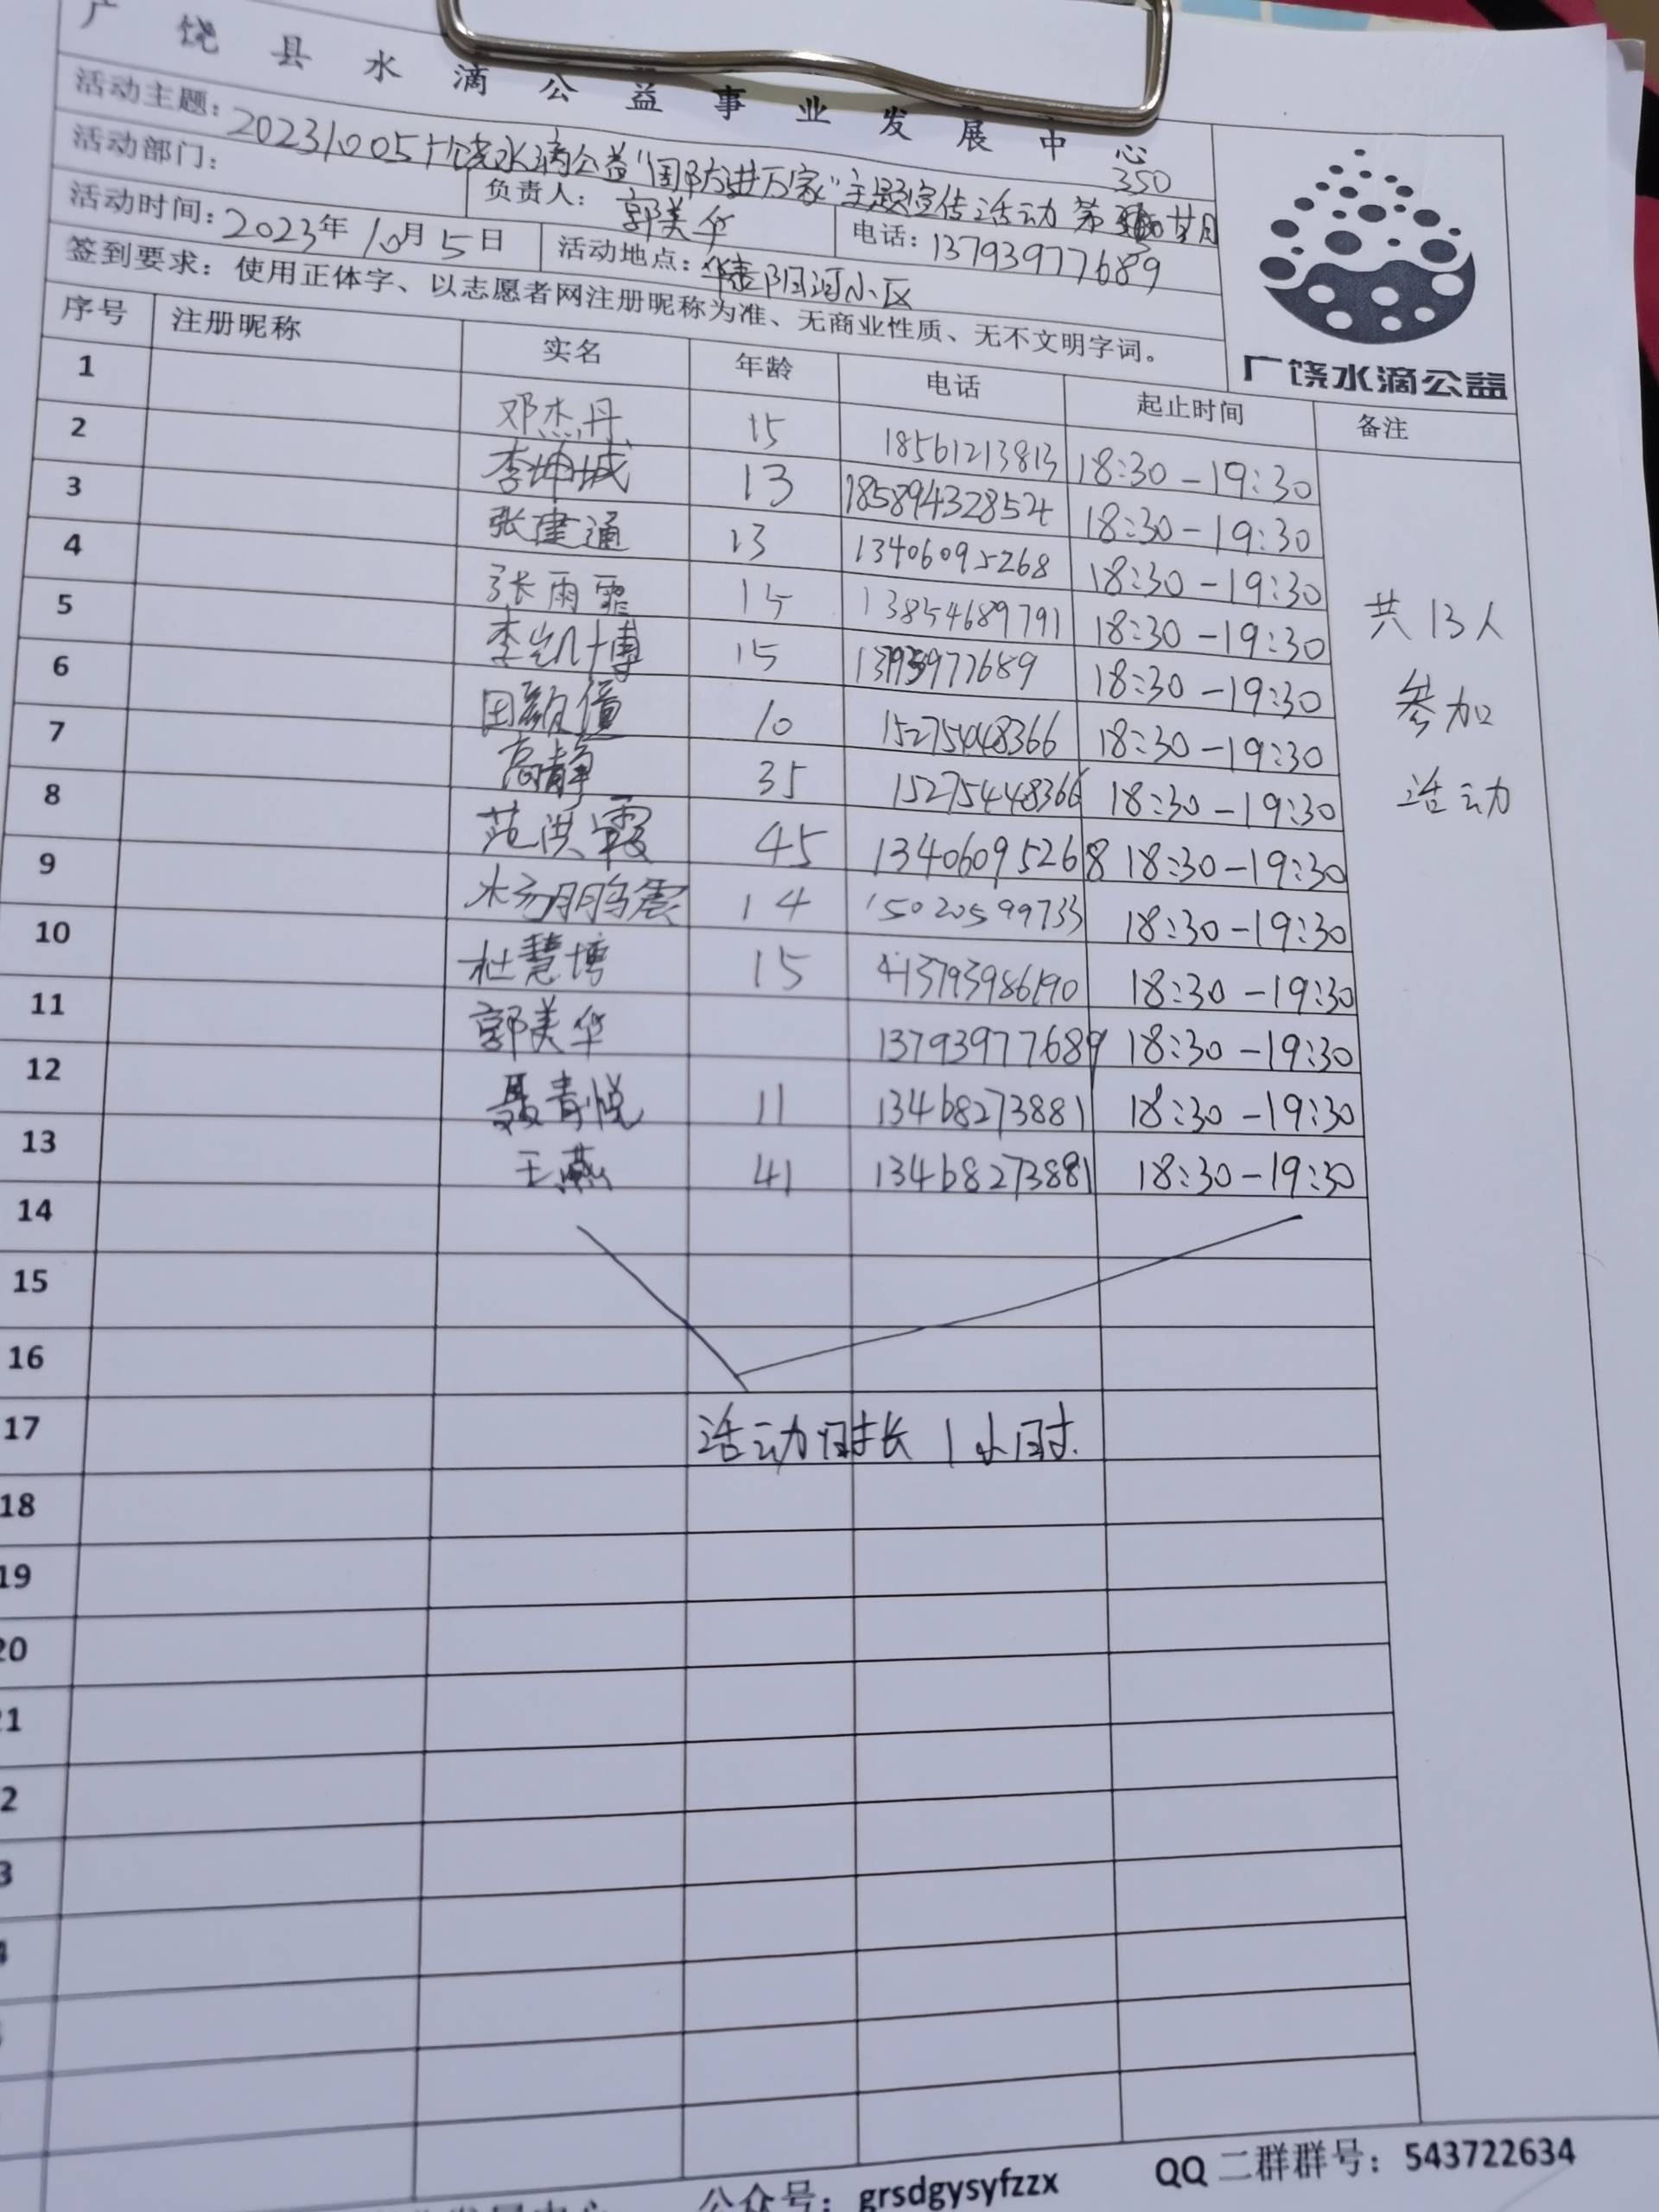 广饶县水滴公益事业发展中心
活动主题：20231005广饶水滴公益“国防进万家”主题宣传活动 第 350 廿月
活动部门： 负责人：郭美华 电话：13793977689
活动时间：2023年10月5日 活动地点：华泰阳河小区
签到要求：使用正体字、以志愿者网注册昵称为准、无商业性质、无不文明字词。
广饶水滴公益
序号 注册昵称 实名 年龄 电话 起止时间 备注
1 邓杰丹 15 18561213813 18:30-19:30
2 李坤城 13 185894328524 18:30-19:30
3 张建通 13 13406095268 18:30-19:30
4 张雨霏 15 13854689791 18:30-19:30
5 李凯博 15 13793977689 18:30-19:30
6 田颢僖 10 15275448366 18:30-19:30
7 高静 35 15275448366 18:30-19:30
8 范洪霞 45 13406095268 18:30-19:30
9 杨朋震 14 15020599733 18:30-19:30
10 杜慧博 15 13793986190 18:30-19:30
11 郭美华 13793977689 18:30-19:30
12 聂青悦 11 13468273881 18:30-19:30
13 王燕 41 13468273881 18:30-19:30
共13人
参加
活动
14
15
16
17 活动时长1小时.
18
19
20
21
2
3
公众号：grsdgysyfzzx QQ二群群号：543722634